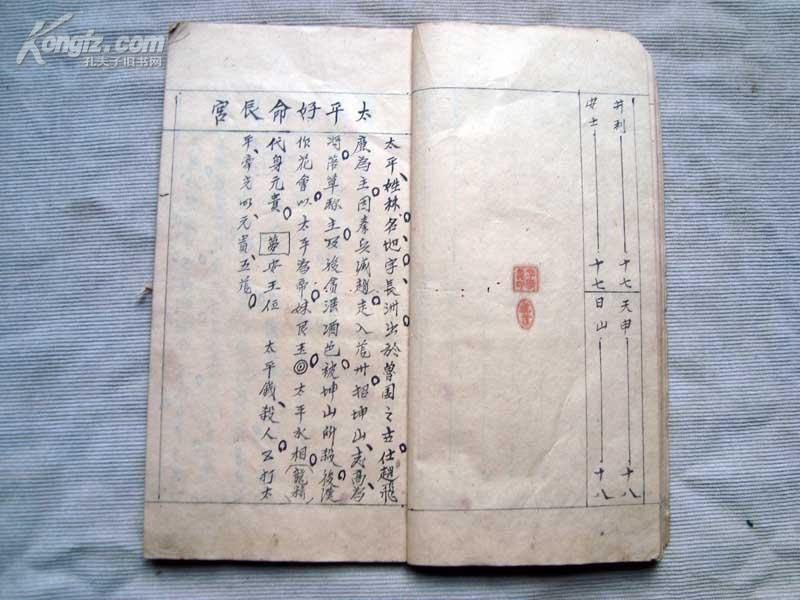 Kongfz.com
孔夫子旧书网
井利 十七 天申 十八
安士 十七 日山 十八
太平好命長宮
太平姓林名地字長洲出於曾国之士仕趙飛
為主因秦兵滅趙走入范州招坤山
将落草称主後貪酒色被坤山所殺後
你花會以太平為帝妹民玉太平水相龍精
代身元貴 夢安王位 太平錢殺人又打太
平帝克以元貴